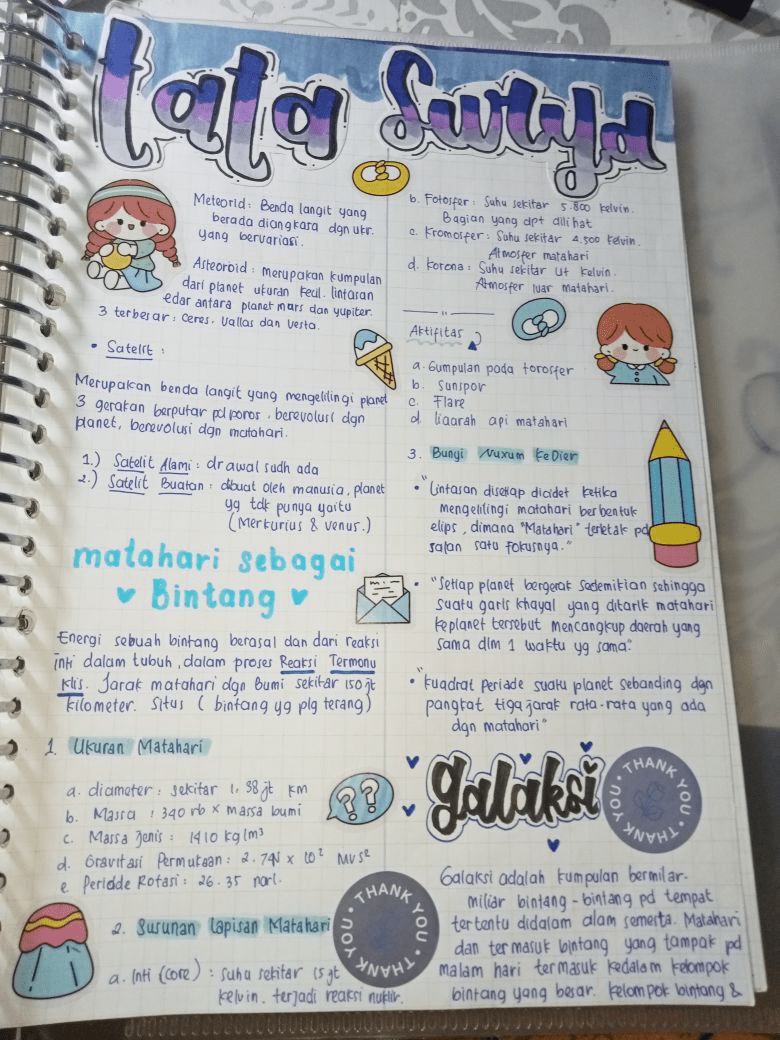 tata Surya
Meteorid : Benda langit yang
berada diangkara dgn ukr.
yang bervariasi.
Asteoroid : merupakan kumpulan
dari planet ukuran kecil. lintasan
edar antara planet mars dan yupiter.
3 terbesar : Ceres, Vallas dan Vesta.
• Satelit :
Merupakan benda langit yang mengelilingi planet
3 gerakan berputar pd poros, berevolusi dgn
planet, berevolusi dgn matahari.
1.) Satelit Alami : dr awal sudh ada
2.) Satelit Buatan : dibuat oleh manusia, planet
yg tdk punya yaitu
(Merkurius & Venus.)
matahari sebagai
Bintang
Energi sebuah bintang berasal dan dari reaksi
inti dalam tubuh, dalam proses Reaksi Termonu
klis. Jarak matahari dgn Bumi sekitar 150 jt
kilometer. Situs ( bintang yg plg terang)
1. Ukuran Matahari
a. diameter : sekitar 1,38 jt km
b. Massa : 340 rb x massa bumi
c. Massa Jenis : 1410 kg/m³
d. Gravitasi Permukaan : 2.74 x 10²
e. Periode Rotasi : 26.35 hari.
2. Susunan Lapisan Matahari
a. Inti (core) : suhu sekitar 15 jt
kelvin. terjadi reaksi nuklir.
b. Fotosfer : Suhu sekitar 5.800 kelvin.
Bagian yang dpt dilihat
c. Kromosfer : Suhu sekitar 4.500 kelvin.
Atmosfer matahari
d. Korona : Suhu sekitar 1jt kelvin.
Atmosfer luar matahari.
Aktifitas
a. Gumpulan pada torosfer
b. Sunspor
c. Flare
d. liaarah api matahari
3. Bungi Nuxum KeDier
• "Lintasan disetiap dicidet ketika
mengelilingi matahari berbentuk
elips, dimana "Matahari" terletak pd
salan satu fokusnya."
• "Setiap planet bergerak sedemikian sehingga
suatu garis khayal yang ditarik matahari
keplanet tersebut mencangkup daerah yang
sama dlm 1 waktu yg sama."
• "kuadrat periade suatu planet sebanding dgn
pangkat tiga jarak rata-rata yang ada
dgn matahari"
galaksi
THANK YOU • THANK YOU •
Galaksi adalah kumpulan bermilar-
miliar bintang-bintang pd tempat
tertentu didalam alam semesta. Matahari
dan termasuk bintang yang tampak pd
malam hari termasuk kedalam kelompok
bintang yang besar. kelompok bintang &
THANK YOU • THANK YOU •